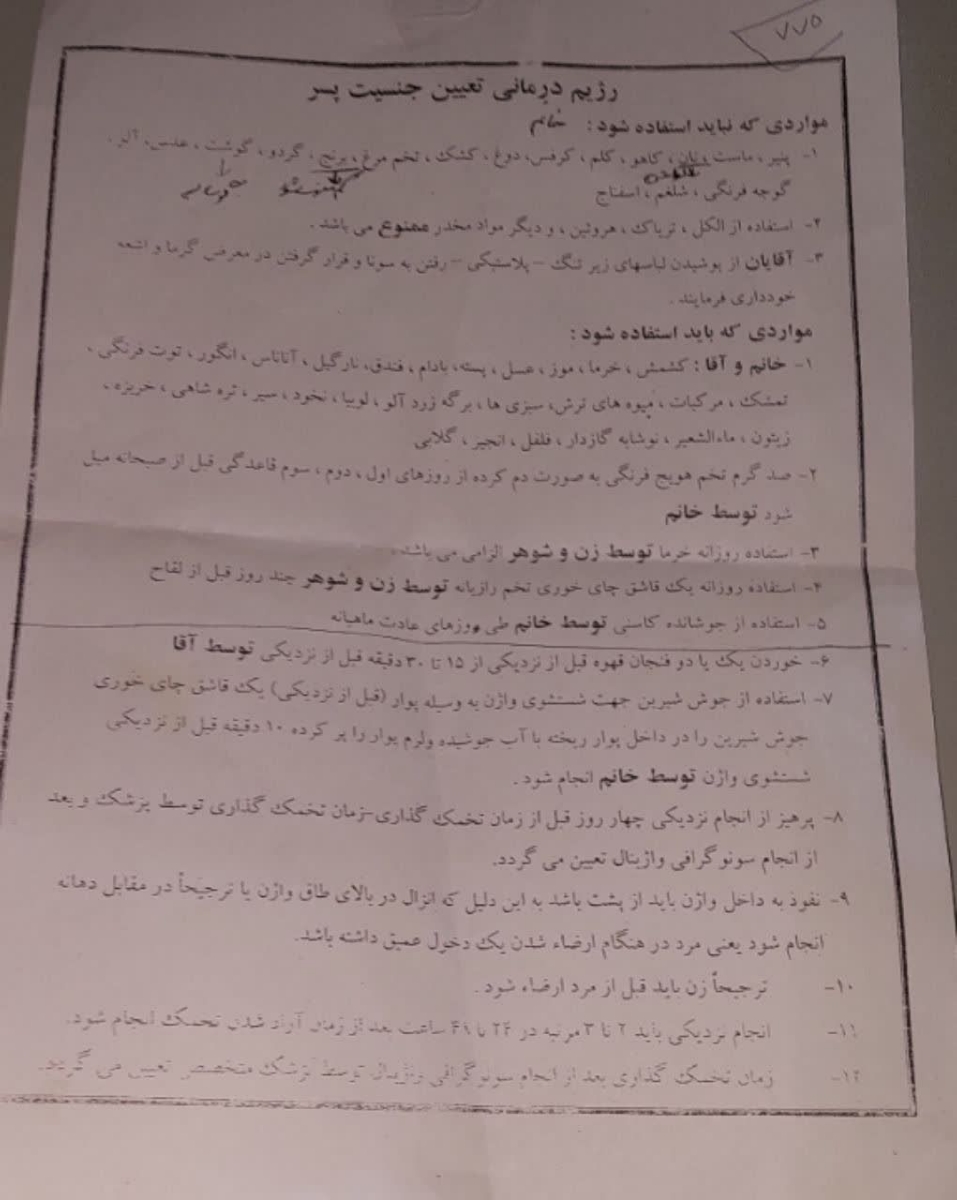 ۷۷۵
رژیم درمانی تعیین جنسیت پسر
مواردی که نباید استفاده شود : خانم
۱- پنیر، ماست، نان، کاهو، کلم، کرفس، دوغ، کشک، تخم مرغ، برنج، گردو، گوشت، عدس،
گوجه فرنگی، شلغم، اسفناج
۲- استفاده از الکل، تریاک، هروئین، و دیگر مواد مخدر ممنوع می باشد.
۳- آقایان از پوشیدن لباسهای زیر تنگ - پلاستیکی - رفتن به سونا و قرار گرفتن در معرض گرما و اشعه
خودداری فرمایند.
مواردی که باید استفاده شود :
۱- خانم و آقا : کشمش، خرما، موز، عسل، پسته، بادام، فندق، نارگیل، آناناس، انگور، توت فرنگی،
تمشک، مرکبات، میوه های ترش، سبزی ها، برگه زرد آلو، لوبیا، نخود، سیر، تره شاهی، خربزه،
زیتون، ماءالشعیر، نوشابه گازدار، فلفل، انجیر، گلابی
۲- صد گرم تخم هویج فرنگی به صورت دم کرده از روزهای اول، دوم، سوم قاعدگی قبل از صبحانه میل
شود توسط خانم
۳- استفاده روزانه خرما توسط زن و شوهر الزامی می باشد.
۴- استفاده روزانه یک قاشق چای خوری تخم رازیانه توسط زن و شوهر چند روز قبل از لقاح
۵- استفاده از جوشانده کاسنی توسط خانم طی روزهای عادت ماهیانه
۶- خوردن یک یا دو فنجان قهوه قبل از نزدیکی از ۱۵ تا ۳۰ دقیقه قبل از نزدیکی توسط آقا
۷- استفاده از جوش شیرین جهت شستشوی واژن به وسیله پوار (قبل از نزدیکی) یک قاشق چای خوری
جوش شیرین را در داخل پوار ریخته با آب جوشیده ولرم پوار را پر کرده ۱۰ دقیقه قبل از نزدیکی
شستشوی واژن توسط خانم انجام شود.
۸- پرهیز از انجام نزدیکی چهار روز قبل از زمان تخمک گذاری-زمان تخمک گذاری توسط پزشک و بعد
از انجام سونوگرافی واژینال تعیین می گردد.
۹- نفوذ به داخل واژن باید از پشت باشد به این دلیل که انزال در بالای طاق واژن یا ترجیحاً در مقابل دهانه
انجام شود یعنی مرد در هنگام ارضاء شدن یک دخول عمیق داشته باشد.
۱۰- ترجیحاً زن باید قبل از مرد ارضاء شود.
۱۱- انجام نزدیکی باید ۲ تا ۳ مرتبه در ۲۴ تا ۴۸ ساعت بعد از زمان آزاد شدن تخمک انجام شود.
۱۲- زمان تخمک گذاری بعد از انجام سونوگرافی واژینال توسط پزشک متخصص تعیین می گردد.